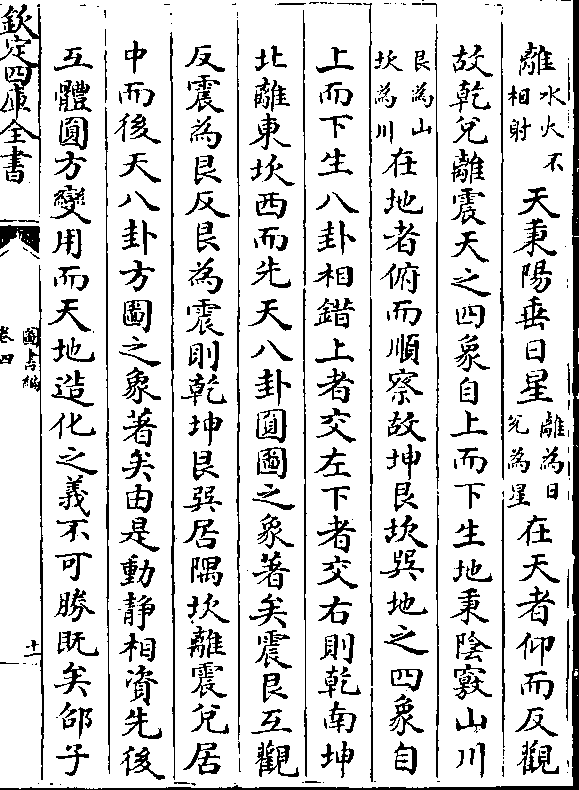 離水火不相射天秉陽垂日星離為日兌為星在天者仰而反觀
故乾兌離震天之四象自上而下生地秉陰竅山川
艮為山坎為川在地者俯而順察故坤艮坎巽地之四象自
上而下生八卦相錯上者交左下者交右則乾南坤
北離東坎西而先天八卦圓圖之象著矣震艮互觀
反震為艮反艮為震則乾坤艮巽居隅坎離震兌居
中而後天八卦方圖之象著矣由是動靜相資先後
互體圓方變用而天地造化之義不可勝既矣邵子
欽定四庫全書
圖書編
卷四
十一